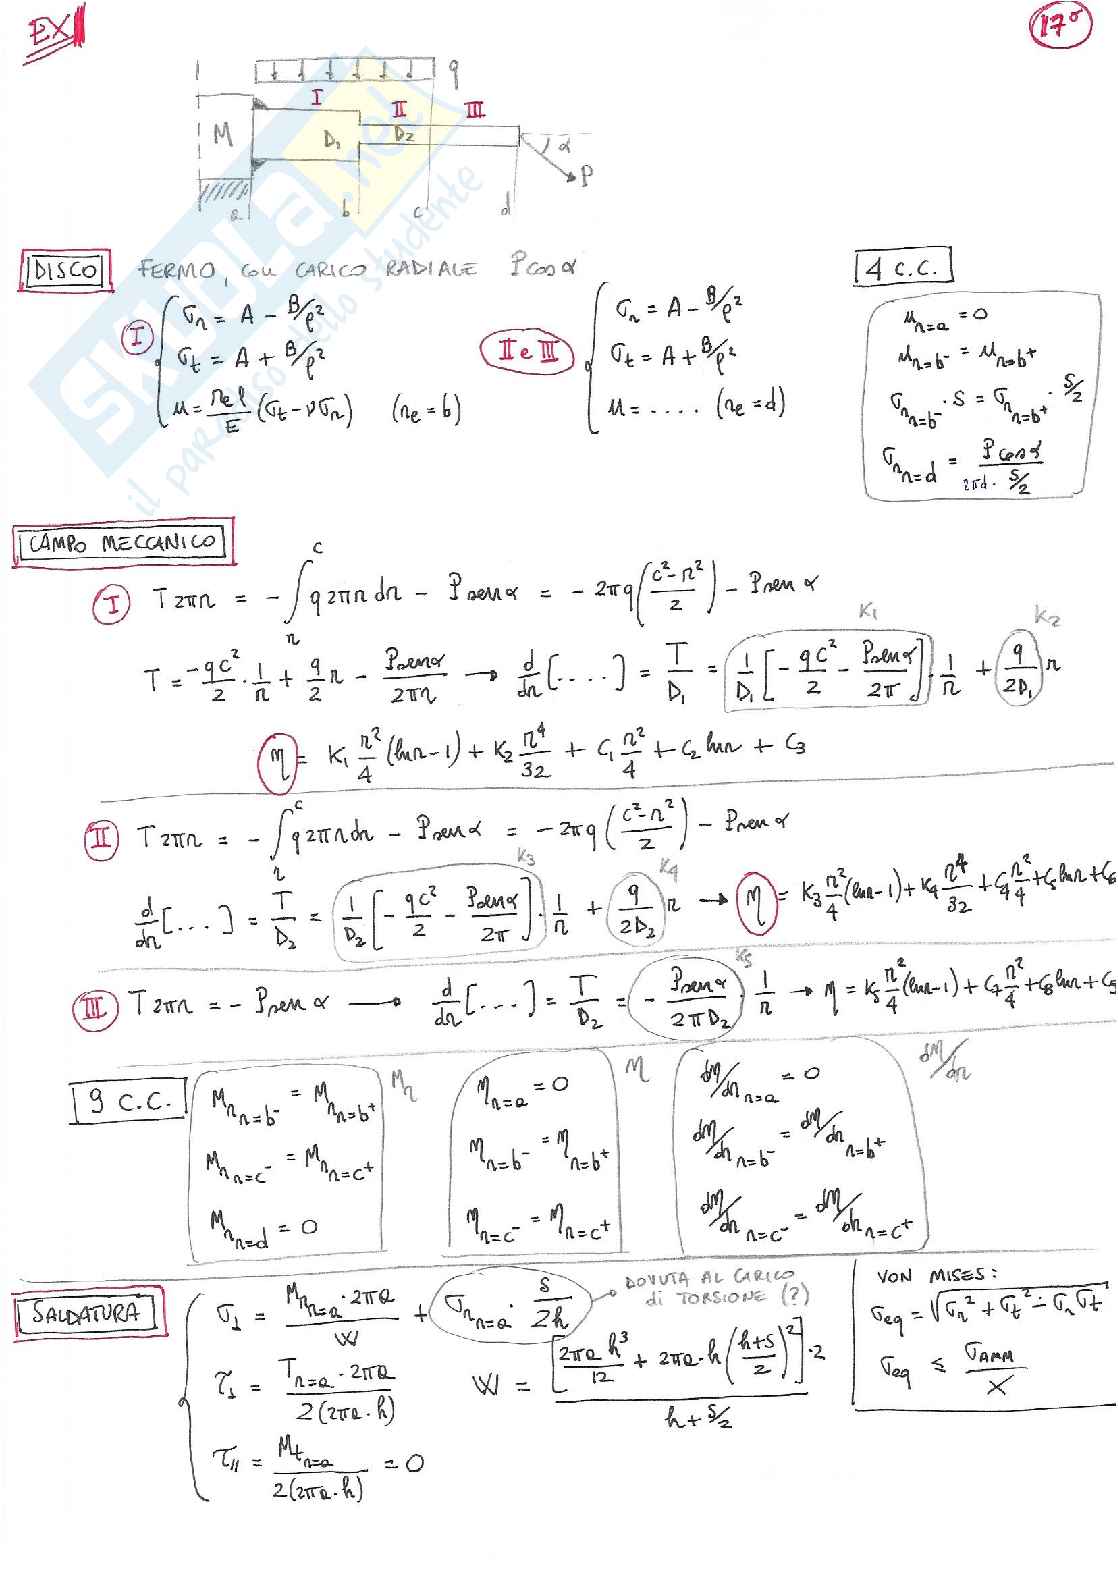 EX
17°
q
I II III
M D₁ D₂ α P
a b c d
DISCO FERMO, CON CARICO RADIALE Pcosα
4 C.C.
I
σr = A - B/ρ²
σt = A + B/ρ²
u = (re ρ / E)(σt - νσr) (re = b)
II e III
σr = A - B/ρ²
σt = A + B/ρ²
u = .... (re = d)
u r=a = 0
u r=b⁻ = u r=b⁺
σr r=b⁻ · s = σr r=b⁺ · s/2
σr r=d = Pcosα / (2πd · s/2)
CAMPO MECCANICO
I T2πr = - ∫_r^c q2πr dr - Psenα = - 2πq((c²-r²)/2) - Psenα
T = (-qc²/2)·(1/r) + (q/2)r - Psenα/(2πr) → d/dr[....] = T/D₁ = (1/D₁)[-qc²/2 - Psenα/2π]·(1/r) + (q/2D₁)r K₁ K₂
η = K₁ (r²/4)(lnr-1) + K₂ r⁴/32 + C₁ r²/4 + C₂ lnr + C₃
II T2πr = - ∫_r^c q2πr dr - Psenα = -2πq((c²-r²)/2) - Psenα
d/dr[...] = T/D₂ = (1/D₂)[-qc²/2 - Psenα/2π]·(1/r) + (q/2D₂)r → η = K₃ (r²/4)(lnr-1) + K₄ r⁴/32 + C₄ r²/4 + C₅ lnr + C₆ K₃ K₄
III T2πr = - Psenα → d/dr[...] = T/D₂ = - (Psenα/2πD₂)·(1/r) → η = K₅ (r²/4)(lnr-1) + C₇ r²/4 + C₈ lnr + C₉ K₅
9 C.C.
Mr
Mr r=b⁻ = Mr r=b⁺
Mr r=c⁻ = Mr r=c⁺
Mr r=d = 0
η
η r=a = 0
η r=b⁻ = η r=b⁺
η r=c⁻ = η r=c⁺
dη/dr
dη/dr r=a = 0
dη/dr r=b⁻ = dη/dr r=b⁺
dη/dr r=c⁻ = dη/dr r=c⁺
SALDATURA
σ⊥ = (Mr r=a · 2πa)/W + σr r=a · s/2h
DOVUTA AL CARICO
di TORSIONE (?)
τ⊥ = (T r=a · 2πa)/(2(2πa·h))
W = [2πa h³/12 + 2πa·h((h+s)/2)²]·2 / (h + s/2)
τ// = Mt r=a / (2(2πa·h)) = 0
VON MISES:
σeq = √(σr² + σt² - σr σt)
σeq ≤ σAMM/X
SKUOLA.net
il paradiso dello studente